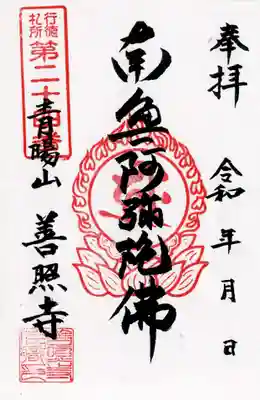 奉拝
令和 年 月 日
南無阿弥陀佛
行徳札所
第二十四番
青暘山
善照寺